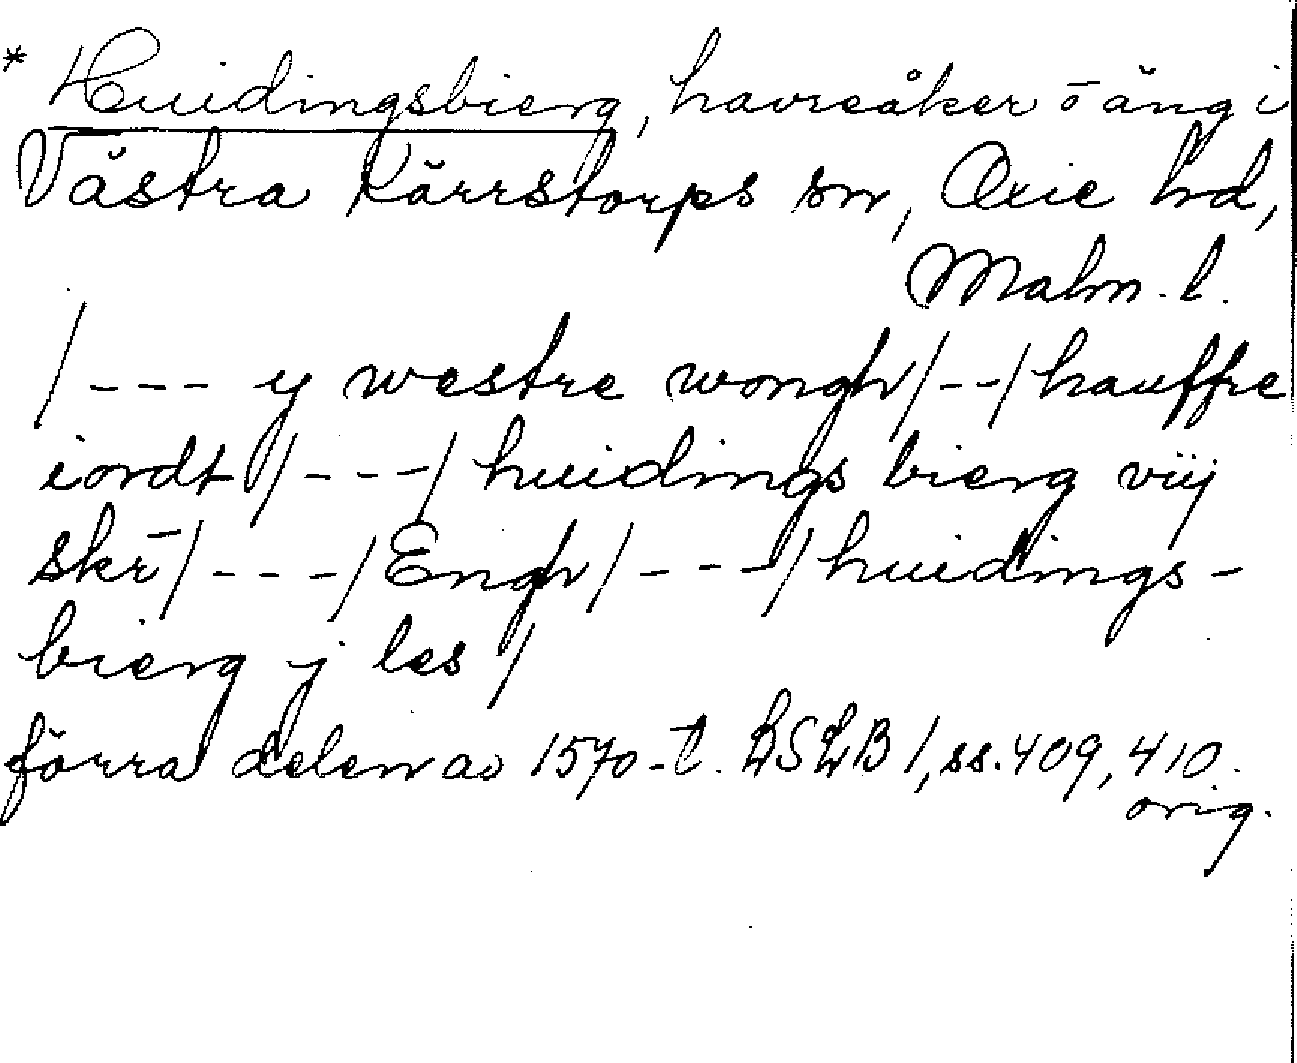 * Huidingsbierg, havreåker o äng i
Västra Kärrstorps sn, Oxie hd,
Malm. l.
/--- y westre wongh/--/hauffre
iordt/---/huidings bierg viij
skr̄/---/Engh/---/huidings-
bierg j les/
förra delen av 1570-t. LSLB 1, ss. 409, 410.
orig.